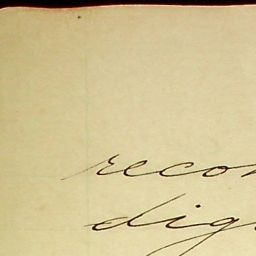 recon
dig